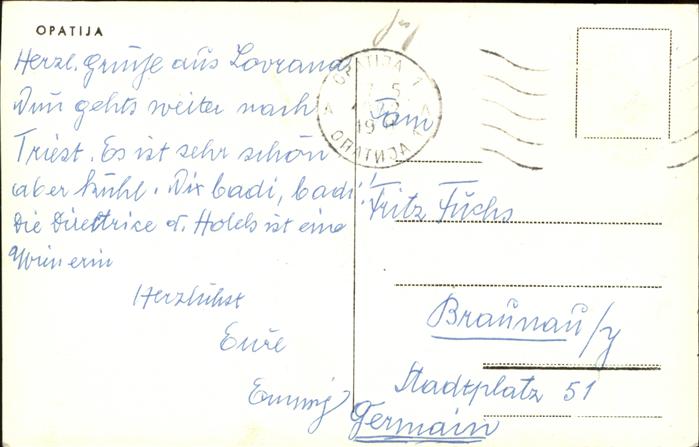 OPATIJA
Herzl. Grüße aus Lovrana
Nun gehts weiter nach
Triest. Es ist sehr schön
aber kühl. Nix badi, badi!
Die Direktrice d. Hotels ist eine
Wienerin
Herzlichst
Eure
OPATIJA 1
ОПАТИЈА
Fam
Fritz Fuchs
Braunau/
Stadtplatz 51
Germain